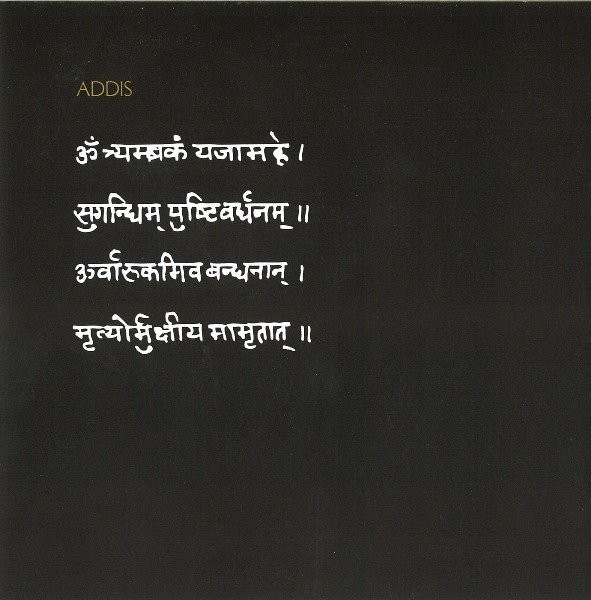 ADDIS
ॐ त्र्यम्बकं यजामहे ।
सुगन्धिम् पुष्टिवर्धनम् ॥
ऊर्वारुकमिव बन्धनान् ।
मृत्योर्मुक्षीय मामृतात् ॥